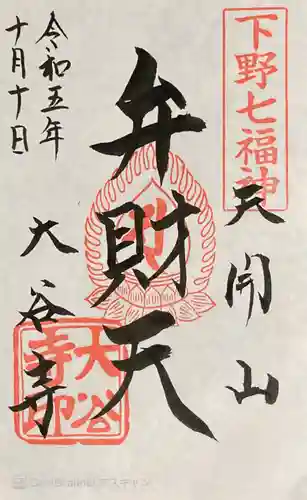 下野七福神
天開山
弁財天
大谷寺
大谷寺印
令和五年
十月十日
CamScanner でスキャン